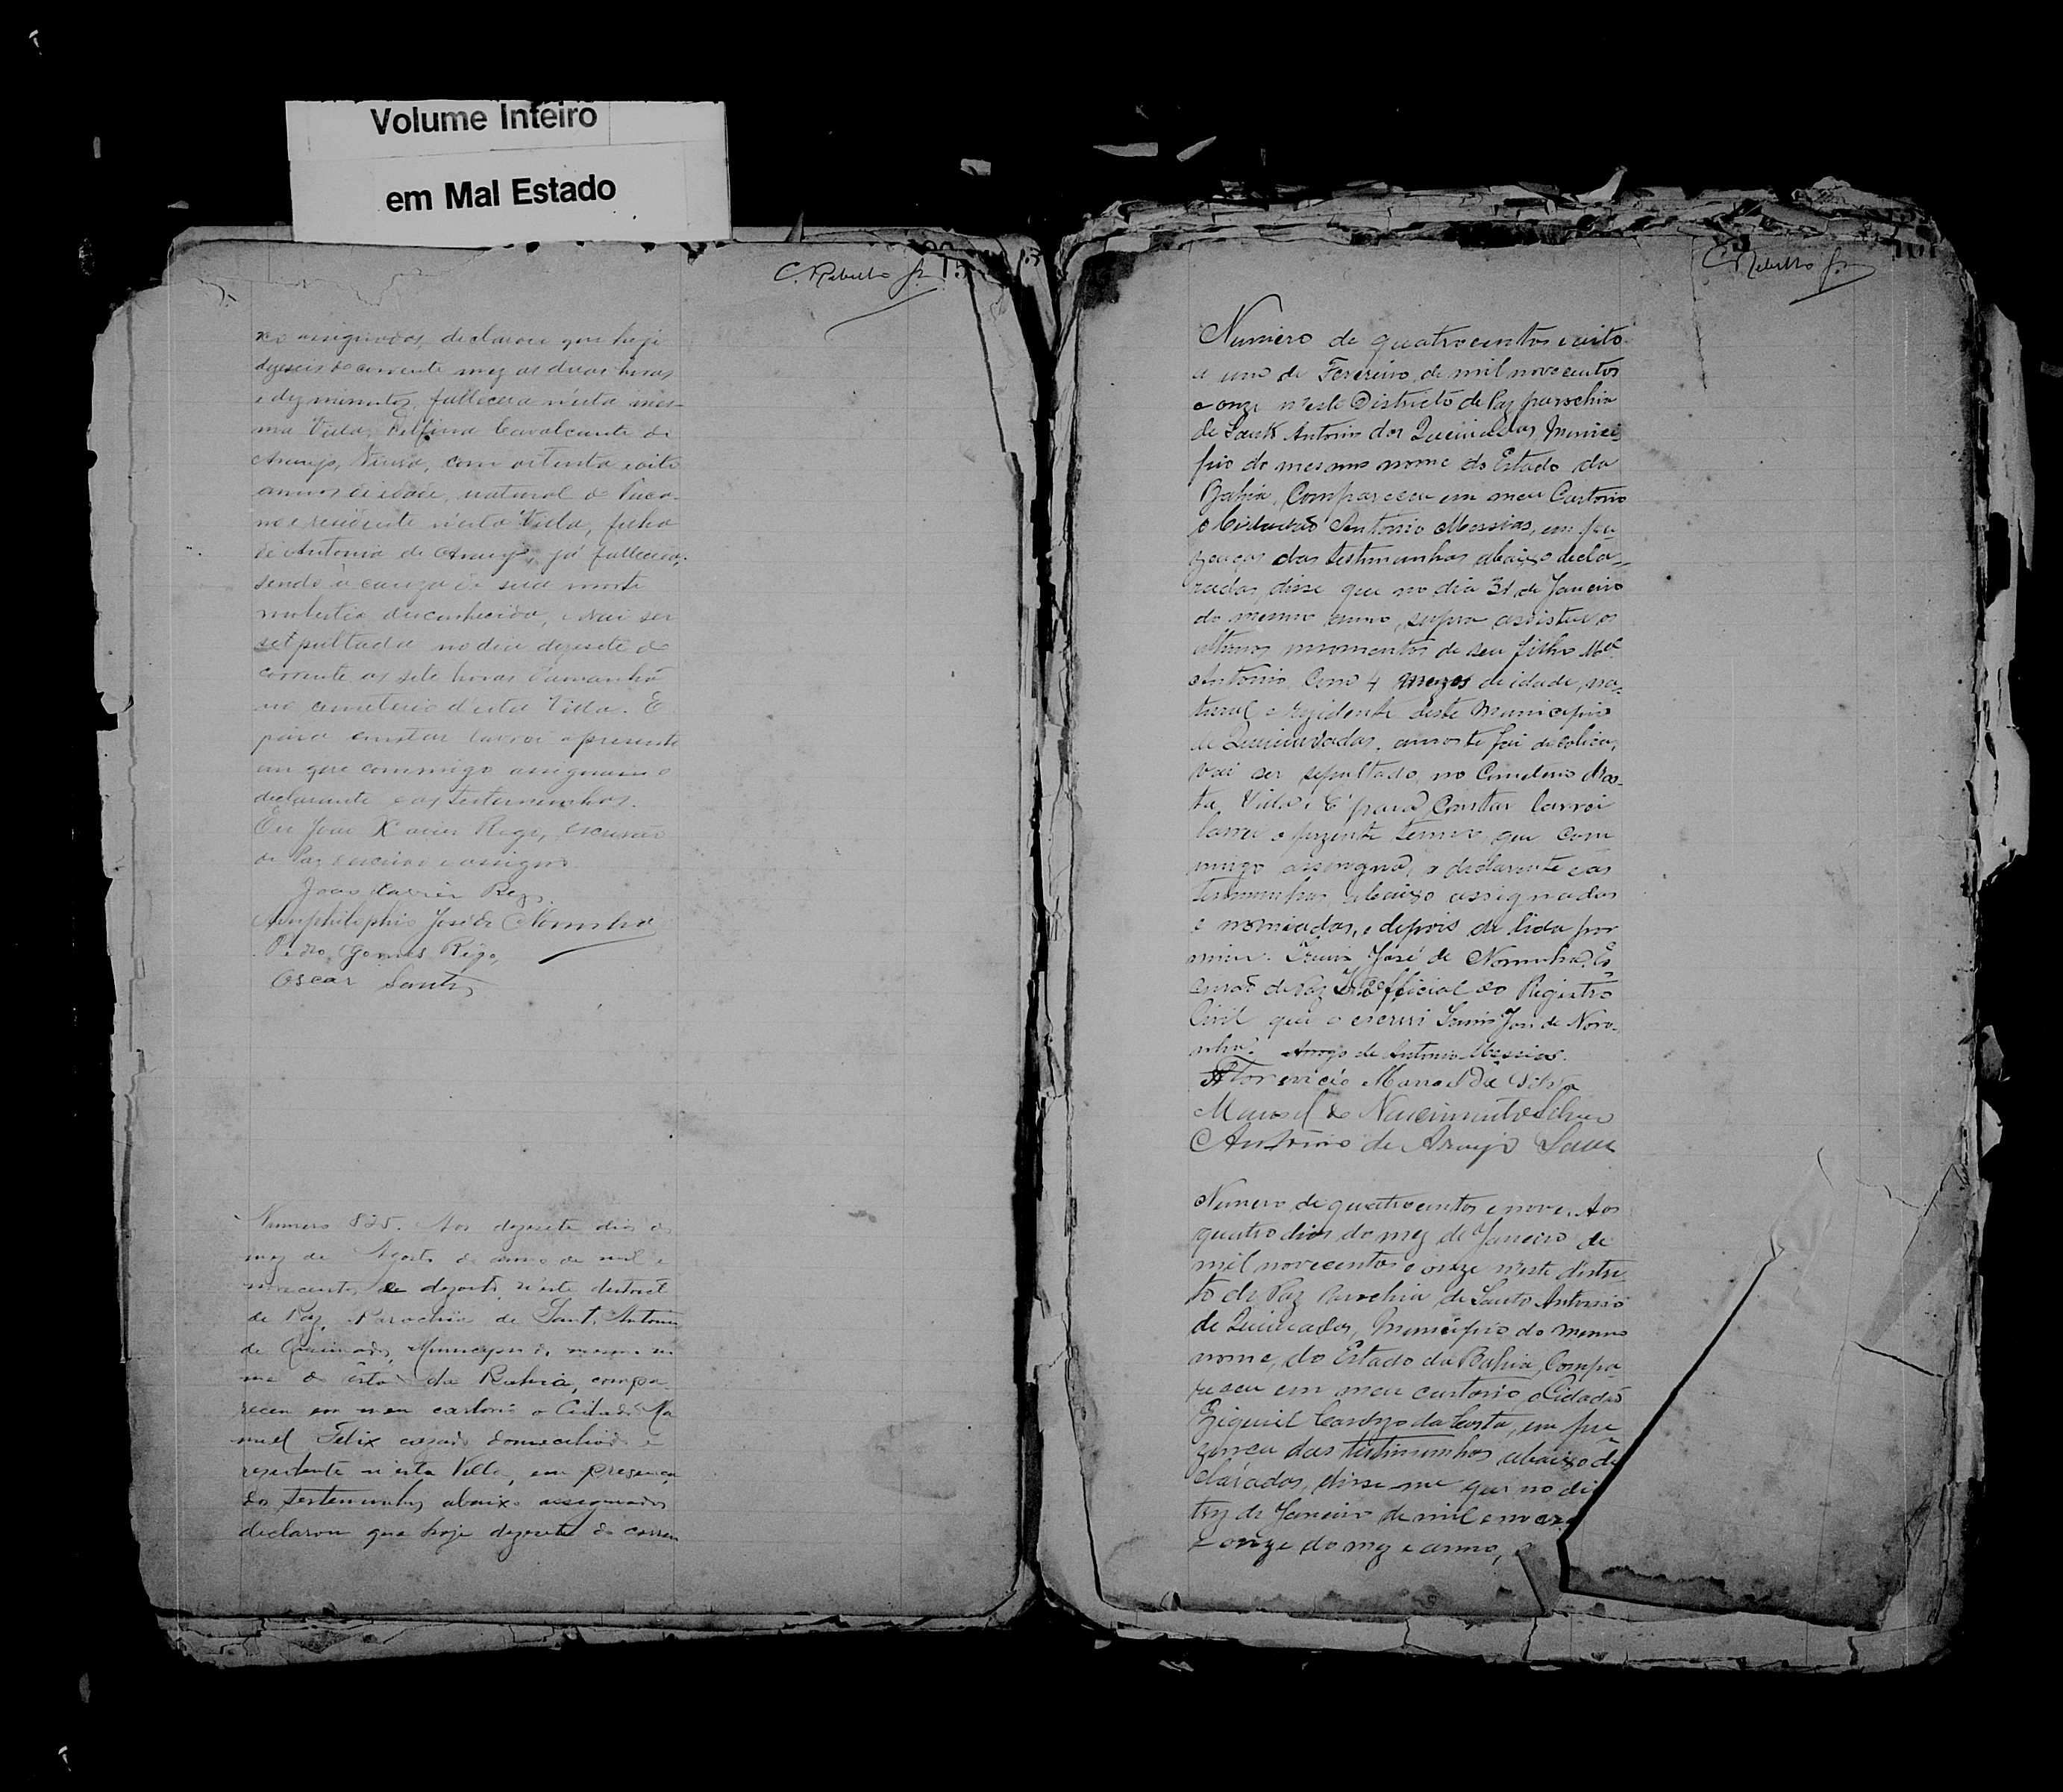 Volume Inteiro
em Mal Estado
C. Rebello Jr.
assignados, declarou que hoje
dezeseis do corrente mez as duas horas
e dez minutos, falleceu n'esta mes-
ma Villa, Delfina Cavalcante de
Araujo, Viuva, com oitenta e oito
annos de idade, natural de
e residente n'esta Villa, filha
de Antonia de Araujo, já fallecida,
sendo a cauza de sua morte
molestia desconhecida, e vai ser
sepultada no dia dezesete do
corrente as sete horas d'amanhã
no cemeterio d'esta Villa. E
para constar lavrei o presente
em que commigo assignam o
declarante e as testemunhas.
Eu João Xavier Rego, escrivão
de Paz escrivi e assigno.
João Xavier Rego.
Amphilophio José de Noronha
Pedro Gomes Rego,
Oscar Santos
Numero 825. Aos dezesete dias do
mez de Agosto do anno de mil e
novecentos e dezoito, n'este districto
de Paz, Parochia de Santo Antonio
de Queimadas, Municipio do mesmo no
me do Estado da Bahia, compa-
receu em meu cartorio o Cidadão Ma
nuel Felix casado domeciliado e
residente n'esta Villa, em presença
das testemunhas abaixo assignadas
declarou que hoje dezesete do corren
C. Rebello Jr.
101
Numero de quatrocentos e oito
a um de Fevereiro de mil novecentos
e onze n'este Districto de Paz parochia
de Santo Antonio das Queimadas, Munici
pio do mesmo nome do Estado da
Bahia, Compareceu em meu Cartorio
o Cidadão Antonio Messias, em pre
zença das testimunhas abaixo decla-
radas, disse que no dia 31 de Janeiro
do mesmo anno, supra assistiu os
ultimos momentos de seu filho Mel
Antonio Com 4 mezes de idade, na-
tural e rezidente deste Municipio
de Queimadas. a morte foi de colica,
vai ser sepultado no Cemiterio des-
ta Villa, E para Constar lavrei
lavrei o prezente termo que com
migo assongnão, o declarante e as
testimunhas abaixo assignados
e nomiadas, e depois de lida por
mim. José de Noronha, Es-
crivão de Paz Official do Registro
Civil que o escrevi José de Noro-
nha. Arogo de Antonio Messias.
Florencio Manoel da Silva
Manoel do Nascimento Silva
Antonio de Araujo
Numero de quatrocentos e nove. Aos
quatro dias do mez de Janeiro de
mil novecentos e onze n'este distri
to de Paz Parochia de Santo Antonio
de Queimadas, Municipio do mesmo
nome, do Estado da Bahia, Compa
receu em meu cartorio o Cidadão
Eziquiel Cardozo da Costa, em pre
zenca das testimunhas abaixo de
claradas, disse me que no di
trez de Janeiro de mil e nove
e onze do mez e anno,